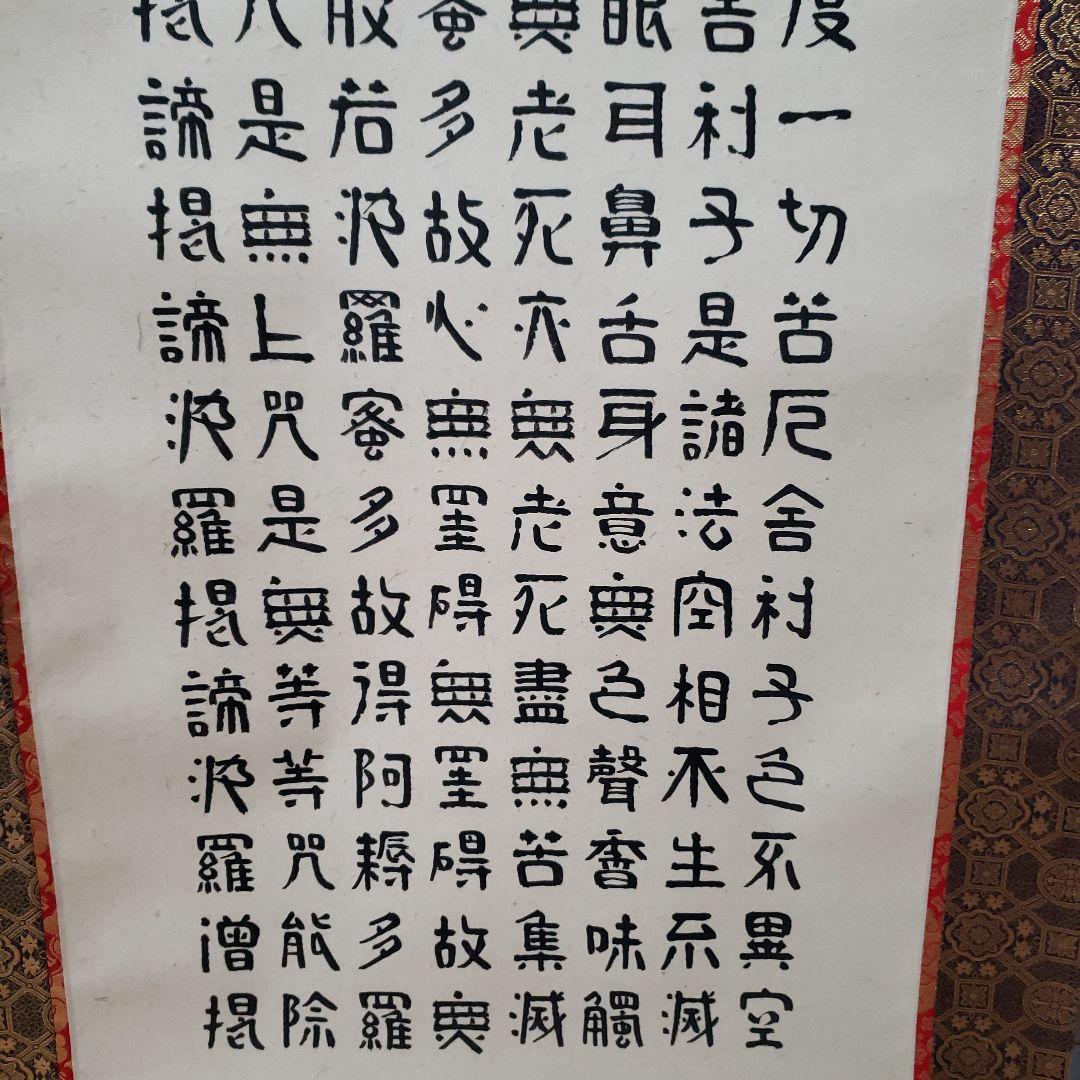 度一切苦厄舍利子色不異空
舍利子是諸法空相不生不滅
眼耳鼻舌身意無色聲香味觸
無老死亦無老死盡無苦集滅
蜜多故心無罣碍無罣碍故無
般若波羅蜜多故得阿耨多羅
是無上咒是無等等咒能除
揭諦揭諦波羅揭諦波羅僧揭